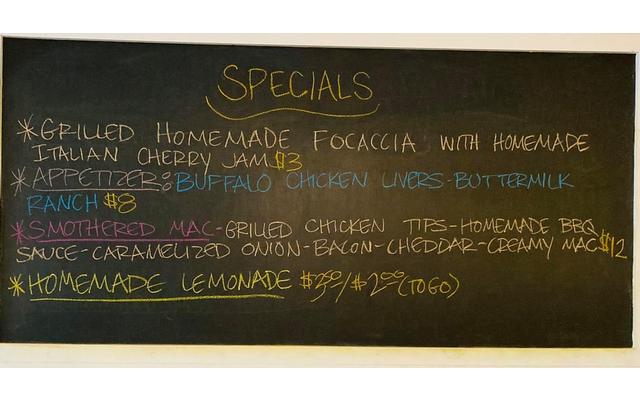 SPECIALS
*GRILLED HOMEMADE FOCACCIA WITH HOMEMADE
ITALIAN CHERRY JAM $3
*APPETIZER: BUFFALO CHICKEN LIVERS-BUTTERMILK
RANCH $8
*SMOTHERED MAC-GRILLED CHICKEN TIPS-HOMEMADE BBQ
SAUCE-CARAMELIZED ONION-BACON-CHEDDAR-CREAMY MAC $12
*HOMEMADE LEMONADE $3.00/$2.00 (TO GO)